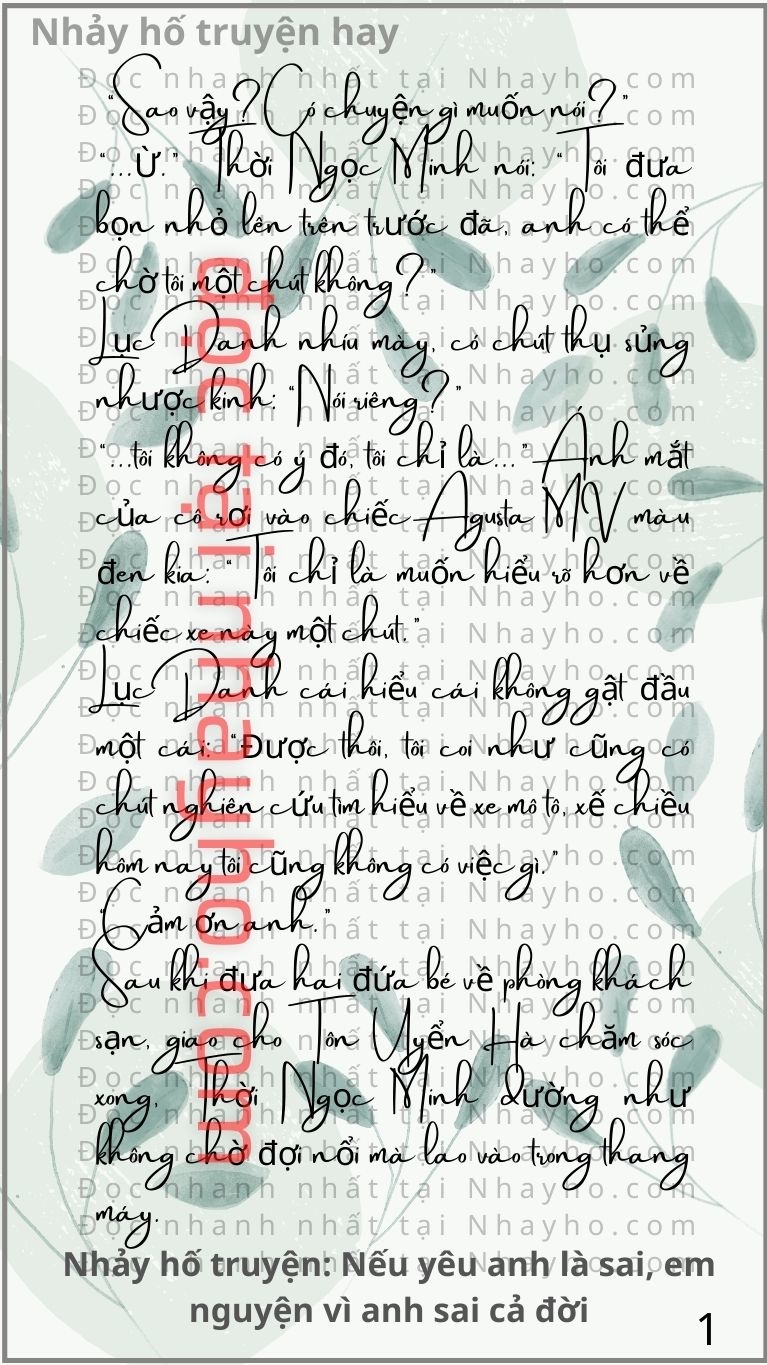 Nhảy hố truyện hay
“Sao vậy? Có chuyện gì muốn nói?”
“...Ừ.” Thời Ngọc Minh nói: “Tôi đưa
bọn nhỏ lên trên trước đã, anh có thể
chờ tôi một chút không?”
Lục Danh nhíu mày, có chút thụ sủng
nhược kinh: “Nói riêng?”
“...tôi không có ý đó, tôi chỉ là...” Ánh mắt
của cô rơi vào chiếc Agusta MV màu
đen kia: “Tôi chỉ là muốn hiểu rõ hơn về
chiếc xe này một chút.”
Lục Danh cái hiểu cái không gật đầu
một cái: “Được thôi, tôi coi như cũng có
chút nghiên cứu tìm hiểu về xe mô tô, xế chiều
hôm nay tôi cũng không có việc gì.”
“Cảm ơn anh.”
Sau khi đưa hai đứa bé về phòng khách
sạn, giao cho Tôn Uyển Hà chăm sóc
xong, Thời Ngọc Minh dường như
không chờ đợi nổi mà lao vào trong thang
máy.
đọc tại nhayho.com
Đọc nhanh nhất tại Nhayho.com
Nhảy hố truyện: Nếu yêu anh là sai, em
nguyện vì anh sai cả đời
1